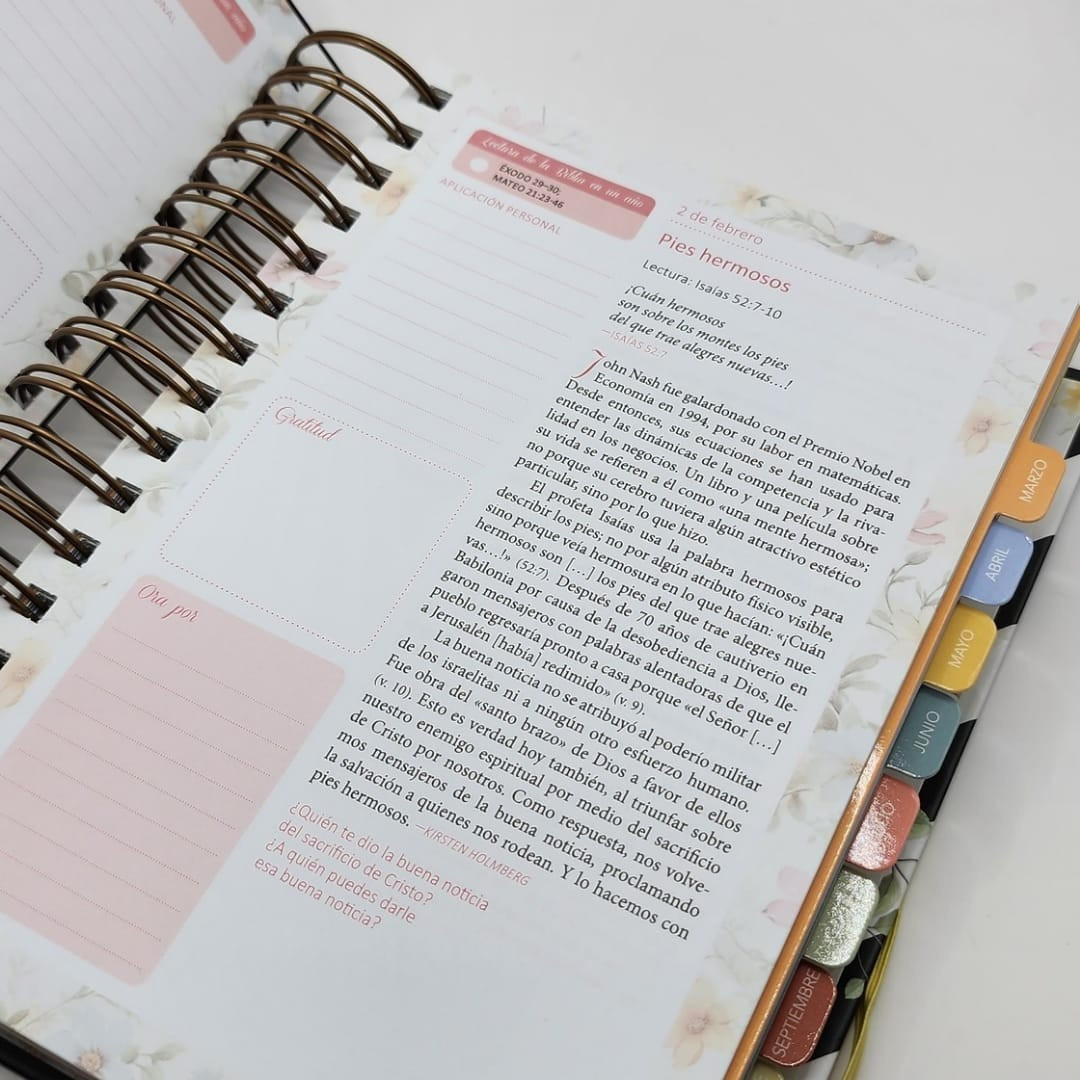 Lectura de la Biblia en un año
ÉXODO 29–30;
MATEO 21:23-46
APLICACIÓN PERSONAL
Gratitud
Ora por
2 de febrero
Pies hermosos
Lectura: Isaías 52:7-10
¡Cuán hermosos
son sobre los montes los pies
del que trae alegres nuevas…!
—ISAÍAS 52:7
John Nash fue galardonado con el Premio Nobel en
Economía en 1994, por su labor en matemáticas.
Desde entonces, sus ecuaciones se han usado para
entender las dinámicas de la competencia y la riva-
lidad en los negocios. Un libro y una película sobre
su vida se refieren a él como «una mente hermosa»;
no porque su cerebro tuviera algún atractivo estético
particular, sino por lo que hizo.
El profeta Isaías usa la palabra hermosos para
describir los pies; no por algún atributo físico visible,
sino porque veía hermosura en lo que hacían: «¡Cuán
hermosos son […] los pies del que trae alegres nue-
vas…!» (52:7). Después de 70 años de cautiverio en
Babilonia por causa de la desobediencia a Dios, lle-
garon mensajeros con palabras alentadoras de que el
pueblo regresaría pronto a casa porque «el Señor […]
a Jerusalén [había] redimido» (v. 9).
La buena noticia no se atribuyó al poderío militar
de los israelitas ni a ningún otro esfuerzo humano.
Fue obra del «santo brazo» de Dios a favor de ellos
(v. 10). Esto es verdad hoy también, al triunfar sobre
nuestro enemigo espiritual por medio del sacrificio
de Cristo por nosotros. Como respuesta, nos volve-
mos mensajeros de la buena noticia, proclamando
la salvación a quienes nos rodean. Y lo hacemos con
pies hermosos. —KIRSTEN HOLMBERG
¿Quién te dio la buena noticia
del sacrificio de Cristo?
¿A quién puedes darle
esa buena noticia?
MARZO
ABRIL
MAYO
JUNIO
SEPTIEMBRE